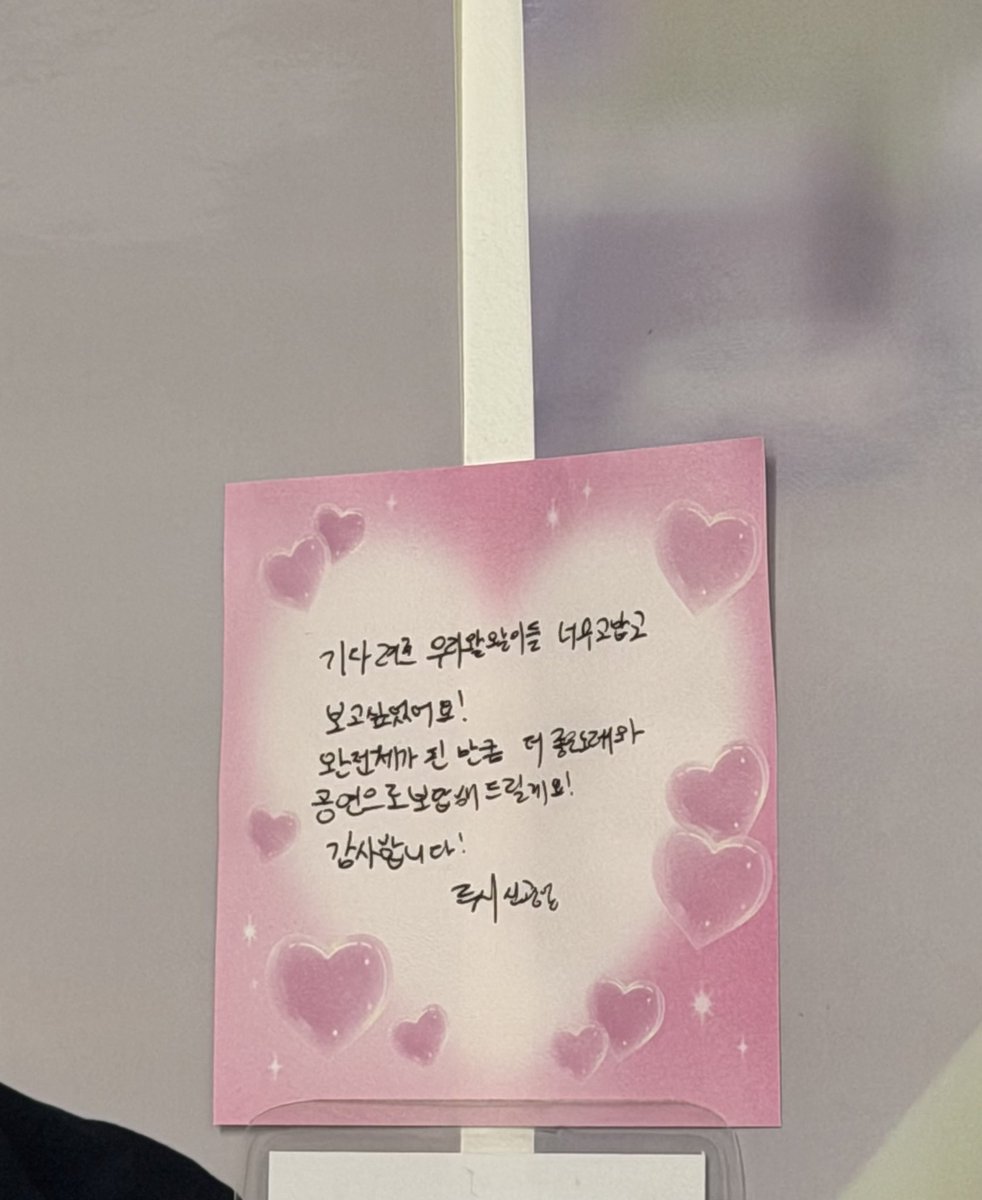 기다려준 우리왈왈이들 너무고맙고
보고싶었어요!
완전체가 된 만큼 더 좋은노래와
공연으로보답해드릴게요!
감사합니다!
루시 신광일